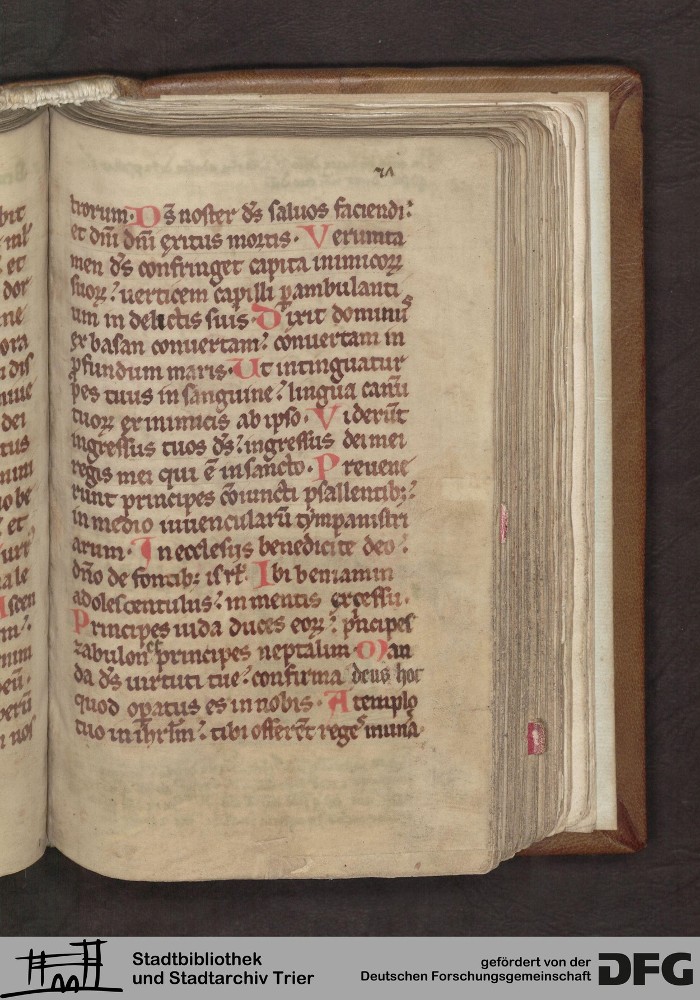 bit
et
dor
ora
dei
tus
et
71
trorum. Ds̄ noster ds̄ saluos faciendi:
et dn̄i dn̄i exitus mortis. Verumta
men ds̄ confringet capita inimicoꝝ
suoꝝ: uerticem capilli ꝑambulanti
um in delictis suis. Dixit dominus
ex basan conuertam: conuertam in
ꝓfundum maris. Ut intinguatur
pes tuus in sanguine: lingua canū
tuoꝝ ex inimicis ab ipso. Viderūt
ingressus tuos ds̄: ingressus dei mei
regis mei qui ē in sancto. Preuene
runt principes cōiuncti psallentibꝫ:
in medio iuuencularū tympanistri
arum. In ecclesiis benedicite deo:
dn̄o de fontibꝫ isrł. Ibi beniamin
adolescentulus: in mentis excessu.
Principes iuda duces eoꝝ: pͥncipes
zabulon et principes neptalim. Man
da ds̄ uirtuti tue: confirma deus hoc
quod opatus es in nobis. A templo
tuo in ihrłm: tibi offerēt reges munā
Stadtbibliothek
und Stadtarchiv Trier
gefördert von der
Deutschen Forschungsgemeinschaft
DFG